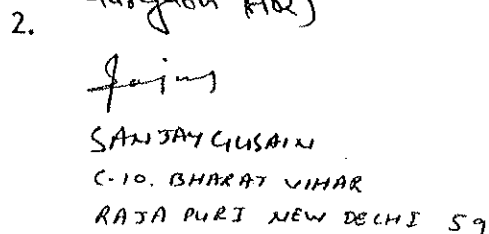 2.
SANJAY GUSAIN
C-10. BHARAT VIHAR
RAJA PURI NEW DELHI 59